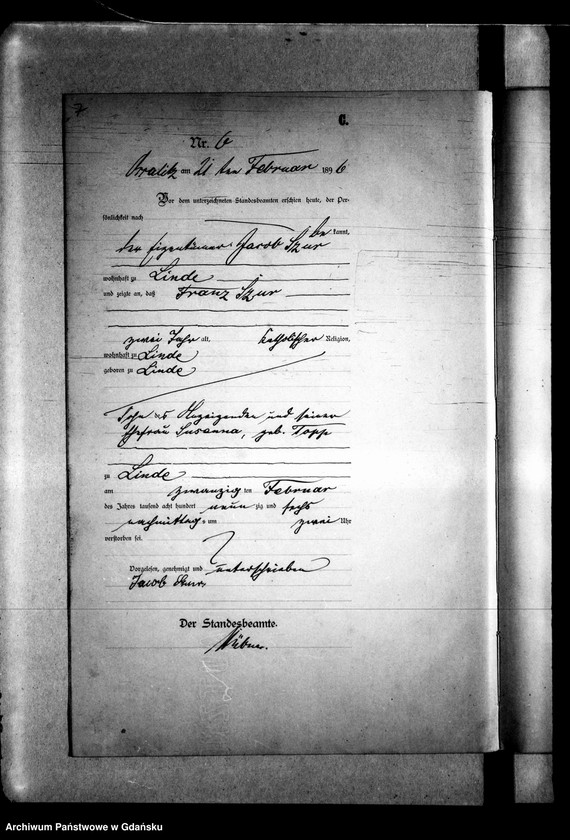 7
C.
Nr. 6
Pralitz am 21 ten Februar 1896
Vor dem unterzeichneten Standesbeamten erschien heute, der Per-
sönlichkeit nach
be kannt,
der Eigentümer Jacob Szur
wohnhaft zu Linde
und zeigte an, daß Franz Szur
zwei Jahr alt, katholischer Religion,
wohnhaft zu Linde
geboren zu Linde
Sohn des Anzeigenden und seiner
Ehefrau Susanna, geb. Topp
zu Linde
am zwanzig ten Februar
des Jahres tausend acht hundert neun zig und sechs
nachmittags um zwei Uhr
verstorben sei.
Vorgelesen, genehmigt und unterschrieben
Jacob Szur
Der Standesbeamte.
Archiwum Państwowe w Gdańsku